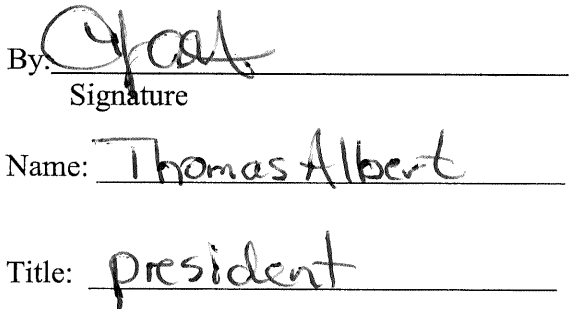 By:
Signature
Name: Thomas Albert
Title: president